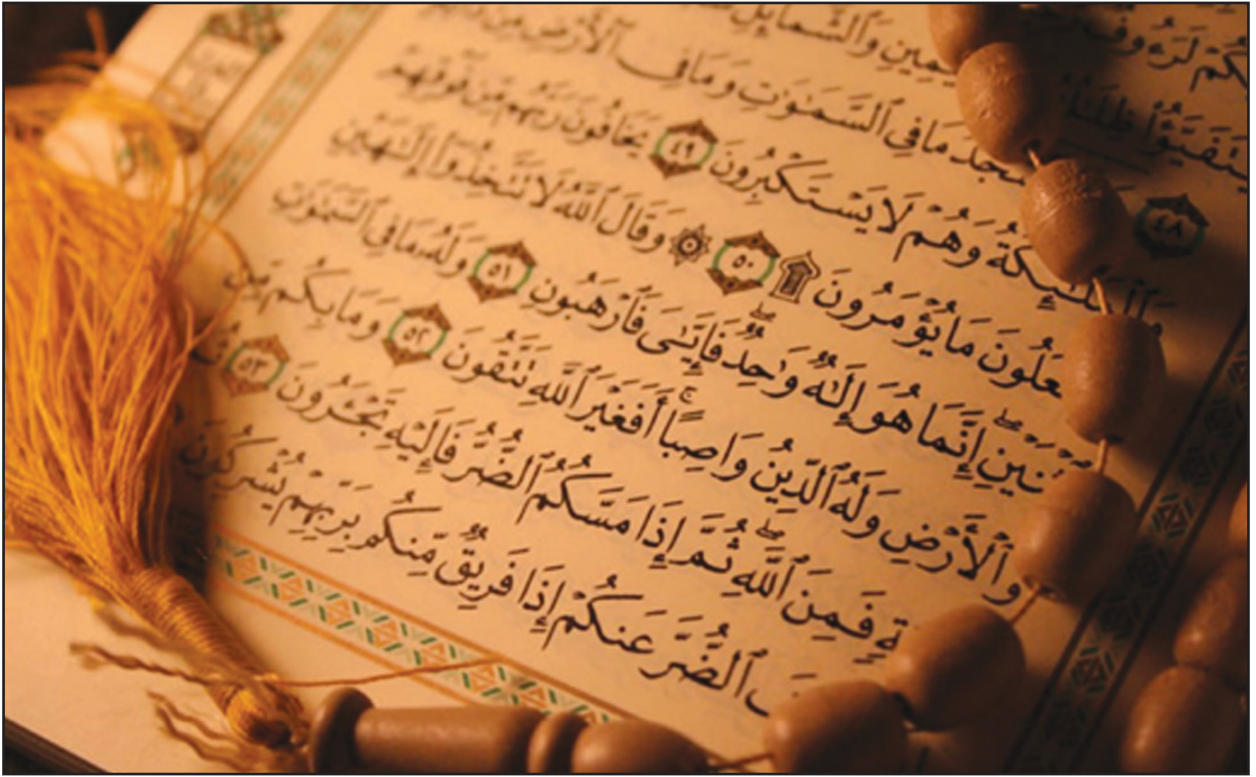 لَرَءُوفٌ
يَتَفَيَّؤُا۟ ظِلَٰلُهُۥ ٱلْيَمِينِ وَٱلشَّمَآئِلِ
٤٨ يَسْجُدُ مَا فِى ٱلسَّمَٰوَٰتِ وَمَا فِى ٱلْأَرْضِ مِن
وَٱلْمَلَٰٓئِكَةُ وَهُمْ لَا يَسْتَكْبِرُونَ ٤٩ يَخَافُونَ رَبَّهُم مِّن فَوْقِهِمْ
عَلُونَ مَا يُؤْمَرُونَ ۩ ٥٠ ۞ وَقَالَ ٱللَّهُ لَا تَتَّخِذُوٓا۟ إِلَٰهَيْنِ
نَيْنِ ۖ إِنَّمَا هُوَ إِلَٰهٌ وَٰحِدٌ ۖ فَإِيَّٰىَ فَٱرْهَبُونِ ٥١ وَلَهُۥ مَا فِى ٱلسَّمَٰوَٰتِ
وَٱلْأَرْضِ وَلَهُ ٱلدِّينُ وَاصِبًا ۚ أَفَغَيْرَ ٱللَّهِ تَتَّقُونَ ٥٢ وَمَا بِكُم مِّن
ةٍ فَمِنَ ٱللَّهِ ۖ ثُمَّ إِذَا مَسَّكُمُ ٱلضُّرُّ فَإِلَيْهِ تَجْـَٔرُونَ ٥٣
ٱلضُّرَّ عَنكُمْ إِذَا فَرِيقٌ مِّنكُم بِرَبِّهِمْ يُشْرِكُونَ